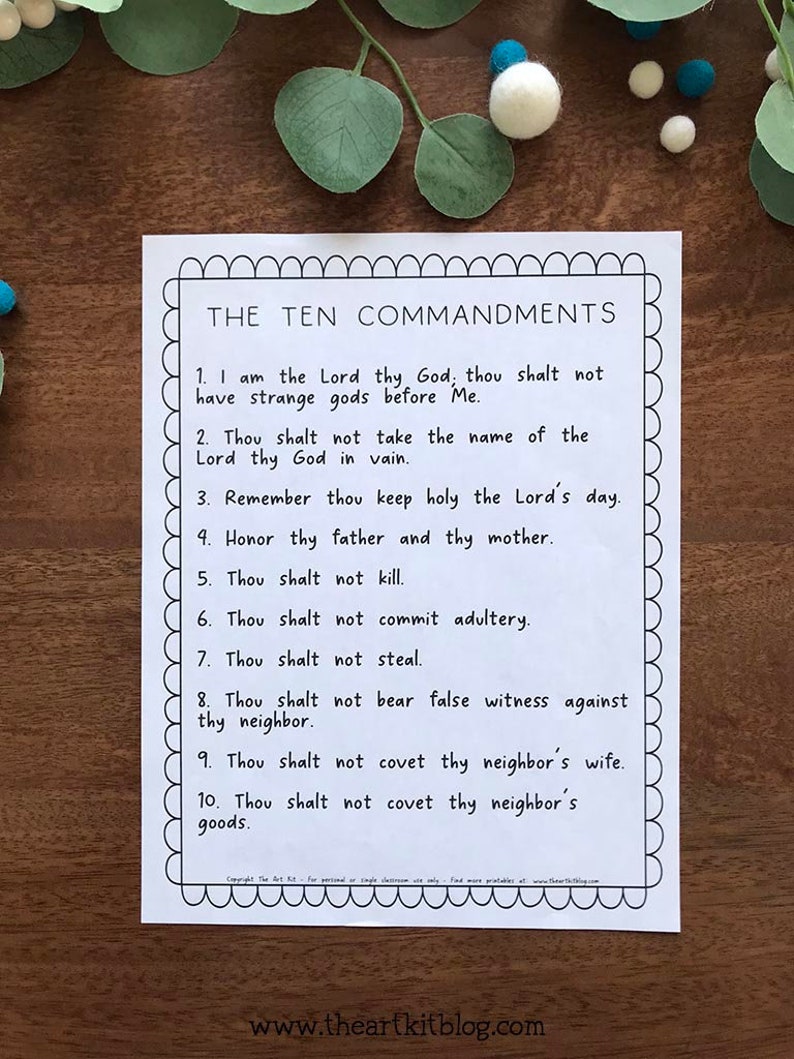 THE TEN COMMANDMENTS
1. I am the Lord thy God; thou shalt not
have strange gods before Me.
2. Thou shalt not take the name of the
Lord thy God in vain.
3. Remember thou keep holy the Lord's day.
4. Honor thy father and thy mother.
5. Thou shalt not kill.
6. Thou shalt not commit adultery.
7. Thou shalt not steal.
8. Thou shalt not bear false witness against
thy neighbor.
9. Thou shalt not covet thy neighbor's wife.
10. Thou shalt not covet thy neighbor's
goods.
Copyright The Art Kit - For personal or single classroom use only - Find more printables at: www.theartkitblog.com
www.theartkitblog.com